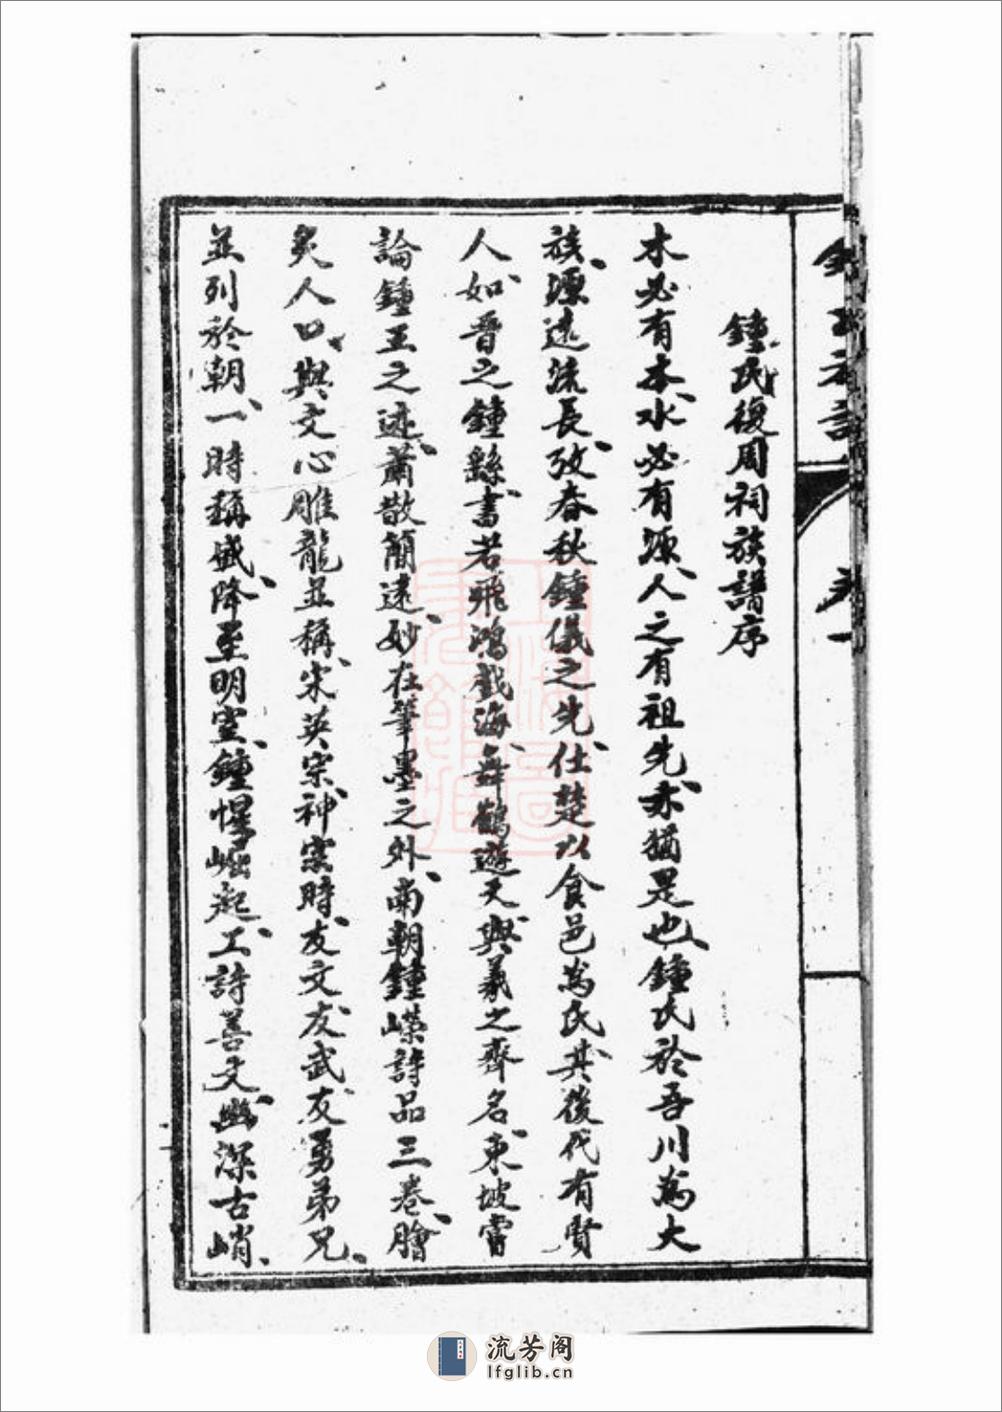 鍾氏復周祠族譜序
木必有本、水必有源、人之有祖先、亦猶是也、鍾氏於吾川為大
族、源遠流長、攷春秋鍾儀之先、仕楚以食邑為氏、其後代有賢
人、如晉之鍾繇、書若飛鴻戲海、舞鶴遊天、與羲之齊名、東坡嘗
論鍾王之迹、蕭散簡遠、妙在筆墨之外、南朝鍾嶸詩品三卷、膾
炙人口、與文心雕龍並稱、宋英宗神宗時、友文友武友勇弟兄、
並列於朝、一時稱盛、降至明室、鍾惺崛起、工詩善文、幽深古峭、
卷一
流芳阁
lfglib.cn